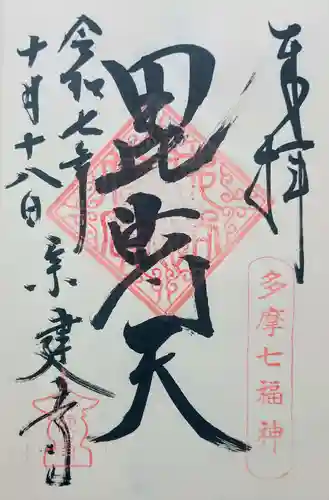 奉拝
多摩七福神
毘射天
令和七年
十月十八日
宗建寺